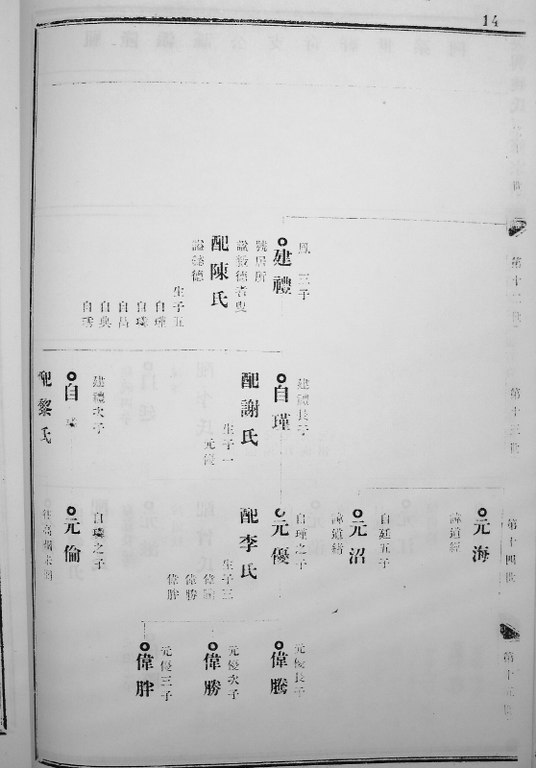 14
第十二世
三子
建禮
號居所
諡毅德耆叟
配陳氏
諡慈德
生子五
自瑾
自璘
自昌
自典
自琇
第十三世
建禮長子
自瑾
配謝氏
生子一
元優
建禮次子
自
配黎氏
第十四世
元海
諱道經
自廷五子
元沼
諱道緒
自瑾之子
元優
配李氏
生子三
偉騰
偉勝
偉胖
自璘之子
元倫
第十五世
元優長子
偉騰
元優次子
偉勝
元優三子
偉胖